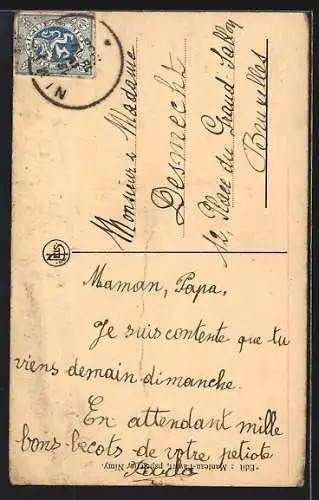 Monsieur & Madame
Desmecht
12, Place du Grand Sablon
Bruxelles
Maman, Papa,
Je suis contente que tu
viens demain dimanche.
En attendant mille
bons becots de votre petiote
Edit : Nimy.
NELS